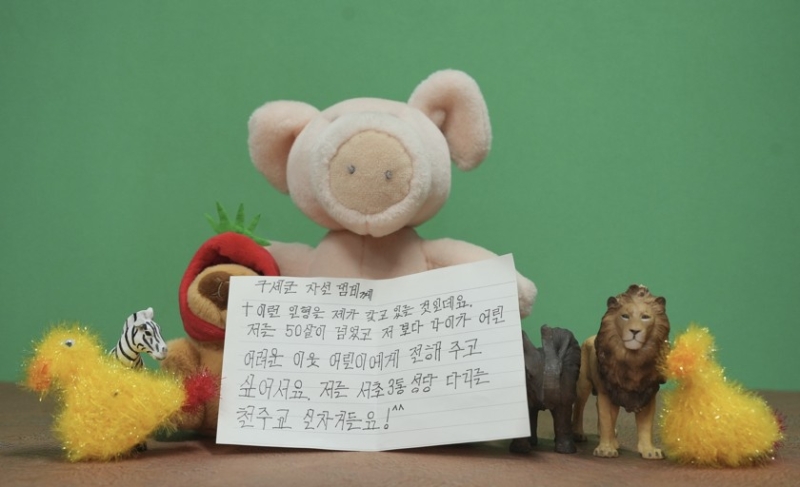 구세군 자선 냄비께
†이런 인형을 제가 갖고 있는 것인데요.
저는 50살이 넘었고 저 보다 나이가 어린
어려운 이웃 어린이에게 전해 주고
싶어서요. 저는 서초3동 성당 다니는
천주교 신자거든요!^^